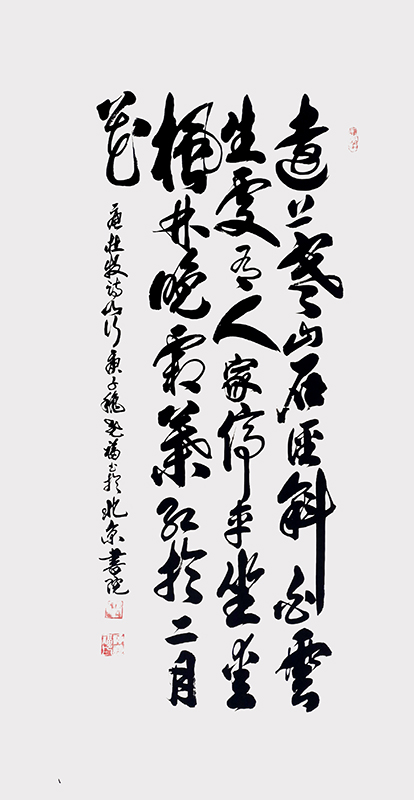 遠上寒山石徑斜白雲
生處有人家停車坐愛
楓林晚霜葉紅於二月
花
唐杜牧詩山行庚子秋福書於北京書院